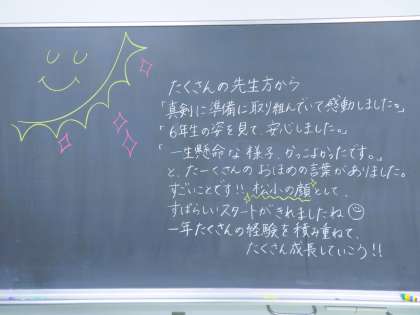 たくさんの先生方から
「真剣に準備に取り組んでいて感動しました。」
「6年生の姿を見て、安心しました。」
「一生懸命な様子、かっこよかったです。」
と、たーくさんのおほめの言葉がありました。
すごいことです!!松小の顔として、
すばらしいスタートがきれましたね
一年たくさんの経験を積み重ねて、
たくさん成長していこう!!